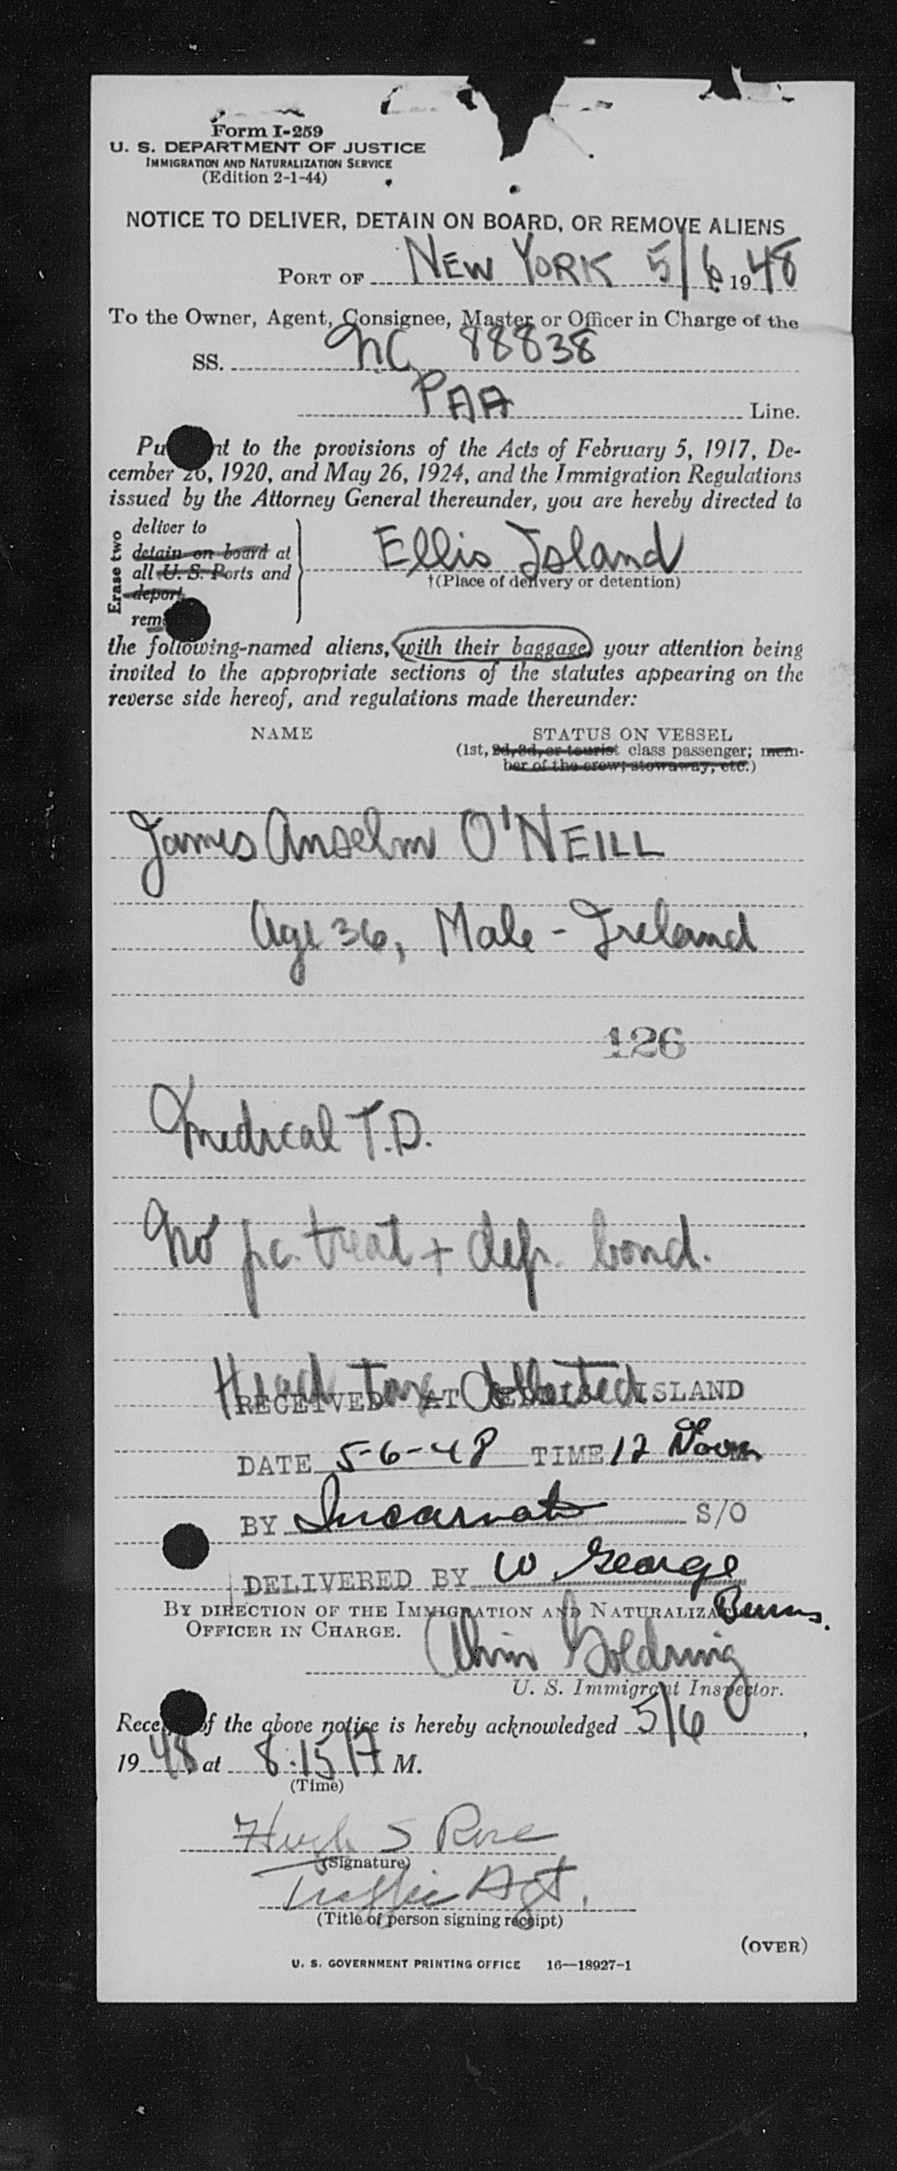 Form I-259
U. S. DEPARTMENT OF JUSTICE
IMMIGRATION AND NATURALIZATION SERVICE
(Edition 2-1-44)
NOTICE TO DELIVER, DETAIN ON BOARD, OR REMOVE ALIENS
PORT OF NEW YORK 5/6 1948
To the Owner, Agent, Consignee, Master or Officer in Charge of the
SS. NC 88838
PAA Line.
Pu nt to the provisions of the Acts of February 5, 1917, De-
cember 26, 1920, and May 26, 1924, and the Immigration Regulations
issued by the Attorney General thereunder, you are hereby directed to
Erase two
deliver to
detain on board at
all U. S. Ports and
deport
rem
Ellis Island
†(Place of delivery or detention)
the following-named aliens, with their baggage, your attention being
invited to the appropriate sections of the statutes appearing on the
reverse side hereof, and regulations made thereunder:
NAME STATUS ON VESSEL
(1st, 2d, 3d, or tourist class passenger; mem-
ber of the crew; stowaway, etc.)
James Anselm O'NEILL
Age 36, Male - Ireland
126
Medical T.D.
No p.c. treat + dep. bond.
Head tax Collected
RECEIVED AT ELLIS ISLAND
DATE 5-6-48 TIME 12 Noon
BY Incarnato S/O
DELIVERED BY W. George
Burns.
BY DIRECTION OF THE IMMIGRATION AND NATURALIZA
OFFICER IN CHARGE.
Alvin Goldring
U. S. Immigrant Inspector.
Rece of the above notice is hereby acknowledged 5/6,
1948, at 8:15 A M.
(Time)
Hugh S Rose
(Signature)
Traffic Agt.
(Title of person signing receipt)
(OVER)
U. S. GOVERNMENT PRINTING OFFICE 16—18927-1